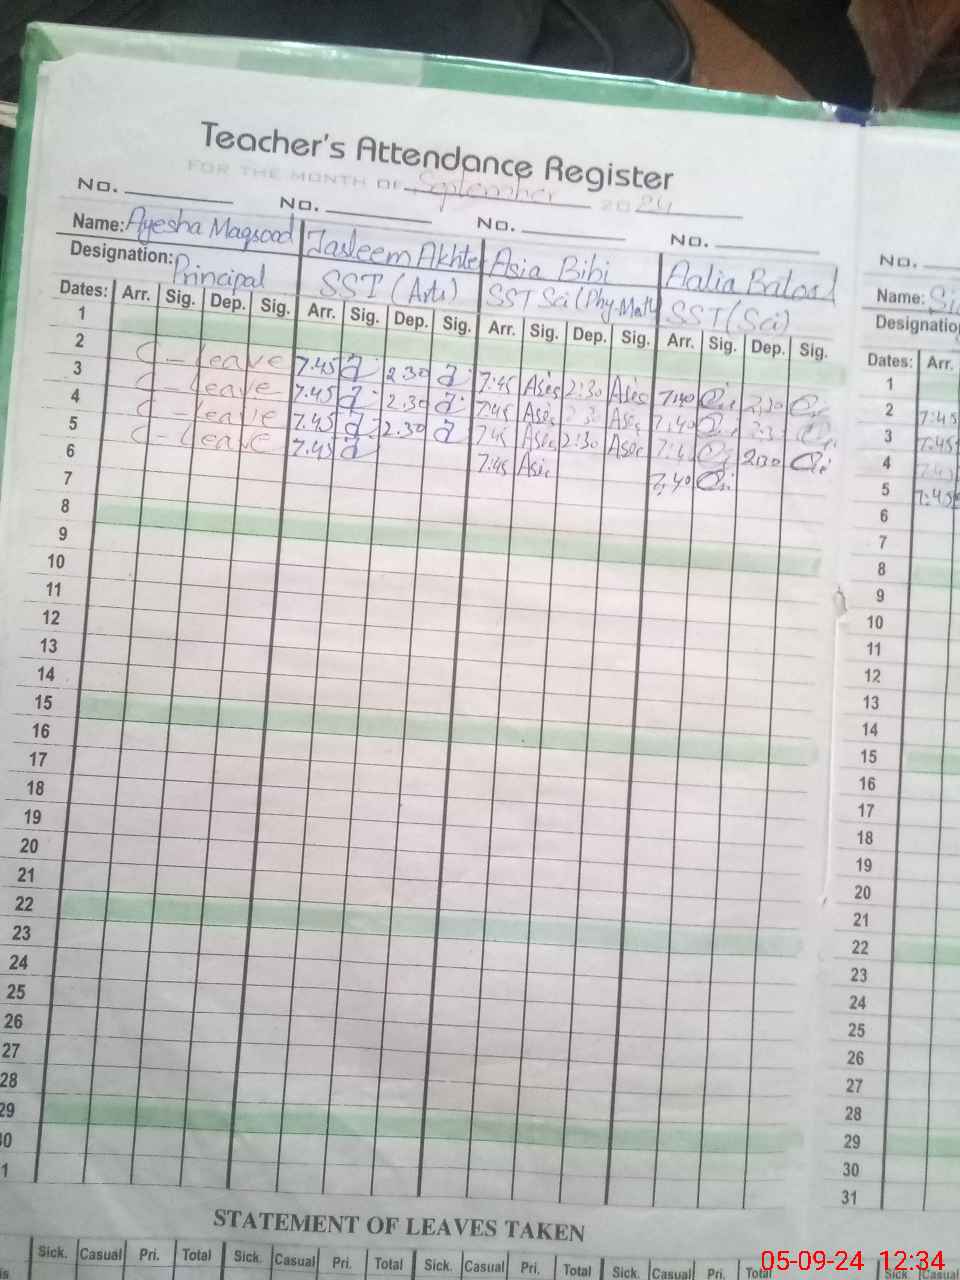 Teacher's Attendance Register
FOR THE MONTH OF September 2024
No. No. No. No.
Name: Ayesha Maqsood Tasleem Akhter Asia Bibi Aalia Batool
Designation: Principal SST (Arts) SST Sci (Phy-Math) SST (Sci)
Dates: Arr. Sig. Dep. Sig. Arr. Sig. Dep. Sig. Arr. Sig. Dep. Sig. Arr. Sig. Dep. Sig.
1
2 C - Leave 7.45 2.30 7:45 2:30 7,40 2,30
3 C - Leave 7.45 2.30 7:45 7,40
4 C - Leave 7.45 2.30 7:45 2:30 2:30
5 C - Leave 7.45 7:45 7,40
6
7
8
9
10
11
12
13
14
15
16
17
18
19
20
21
22
23
24
25
26
27
28
29
30
1
STATEMENT OF LEAVES TAKEN
Sick. Casual Pri. Total Sick. Casual Pri. Total Sick. Casual Pri. Total Sick. Casual Pri. Total
No.
Name:
Designatio
Dates: Arr.
1
2 7:45
3 7:45
4 7:45
5 7:45
6
7
8
9
10
11
12
13
14
15
16
17
18
19
20
21
22
23
24
25
26
27
28
29
30
31
Sick Casual
05-09-24 12:34